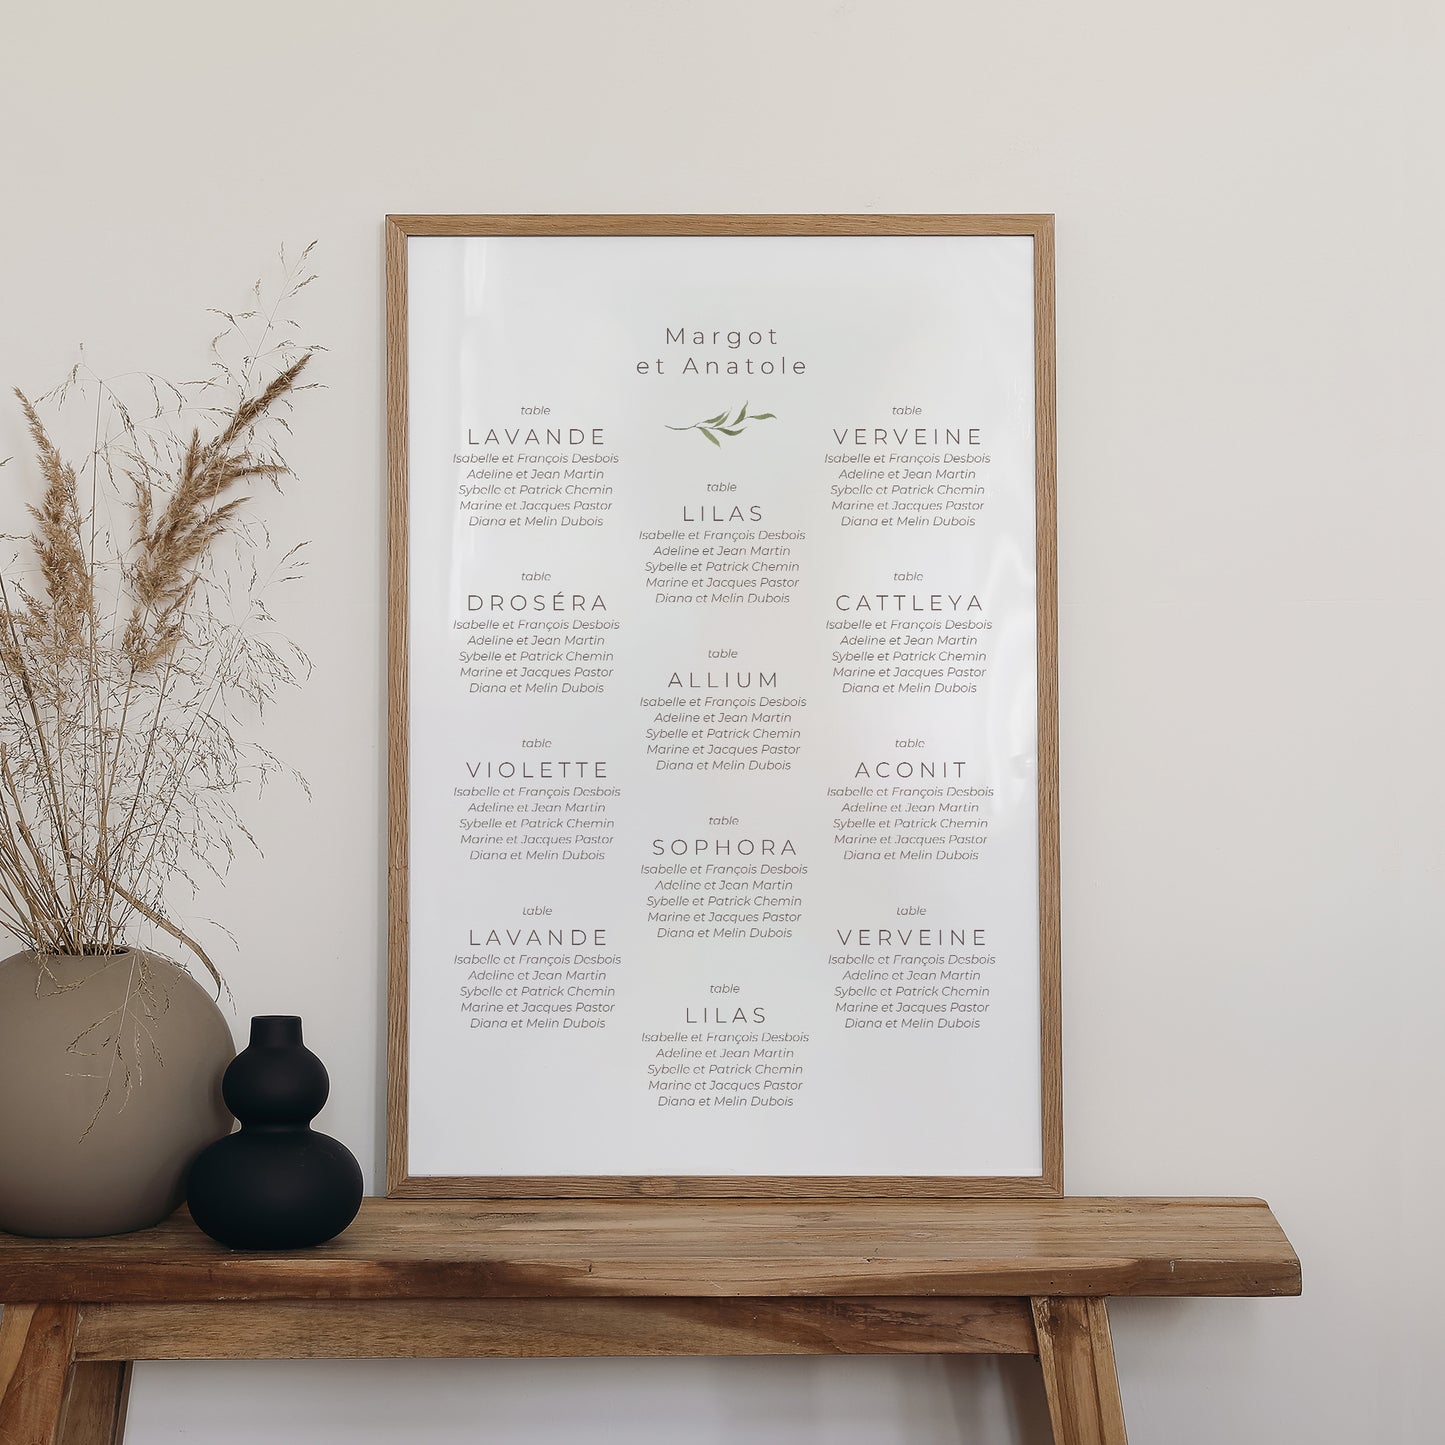 Margot
et Anatole
table
LAVANDE
Isabelle et François Desbois
Adeline et Jean Martin
Sybelle et Patrick Chemin
Marine et Jacques Pastor
Diana et Melin Dubois
table
DROSÉRA
Isabelle et François Desbois
Adeline et Jean Martin
Sybelle et Patrick Chemin
Marine et Jacques Pastor
Diana et Melin Dubois
table
VIOLETTE
Isabelle et François Desbois
Adeline et Jean Martin
Sybelle et Patrick Chemin
Marine et Jacques Pastor
Diana et Melin Dubois
table
LAVANDE
Isabelle et François Desbois
Adeline et Jean Martin
Sybelle et Patrick Chemin
Marine et Jacques Pastor
Diana et Melin Dubois
table
LILAS
Isabelle et François Desbois
Adeline et Jean Martin
Sybelle et Patrick Chemin
Marine et Jacques Pastor
Diana et Melin Dubois
table
ALLIUM
Isabelle et François Desbois
Adeline et Jean Martin
Sybelle et Patrick Chemin
Marine et Jacques Pastor
Diana et Melin Dubois
table
SOPHORA
Isabelle et François Desbois
Adeline et Jean Martin
Sybelle et Patrick Chemin
Marine et Jacques Pastor
Diana et Melin Dubois
table
LILAS
Isabelle et François Desbois
Adeline et Jean Martin
Sybelle et Patrick Chemin
Marine et Jacques Pastor
Diana et Melin Dubois
table
VERVEINE
Isabelle et François Desbois
Adeline et Jean Martin
Sybelle et Patrick Chemin
Marine et Jacques Pastor
Diana et Melin Dubois
table
CATTLEYA
Isabelle et François Desbois
Adeline et Jean Martin
Sybelle et Patrick Chemin
Marine et Jacques Pastor
Diana et Melin Dubois
table
ACONIT
Isabelle et François Desbois
Adeline et Jean Martin
Sybelle et Patrick Chemin
Marine et Jacques Pastor
Diana et Melin Dubois
table
VERVEINE
Isabelle et François Desbois
Adeline et Jean Martin
Sybelle et Patrick Chemin
Marine et Jacques Pastor
Diana et Melin Dubois